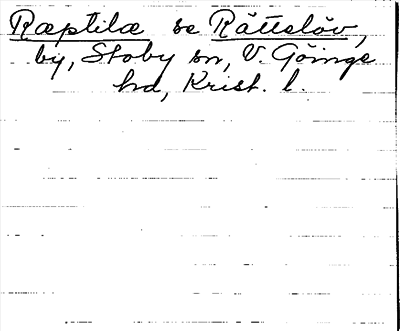 Ræptilæ se Rättelöv,
by, Stoby sn, V. Göinge
hd, Krist. l.